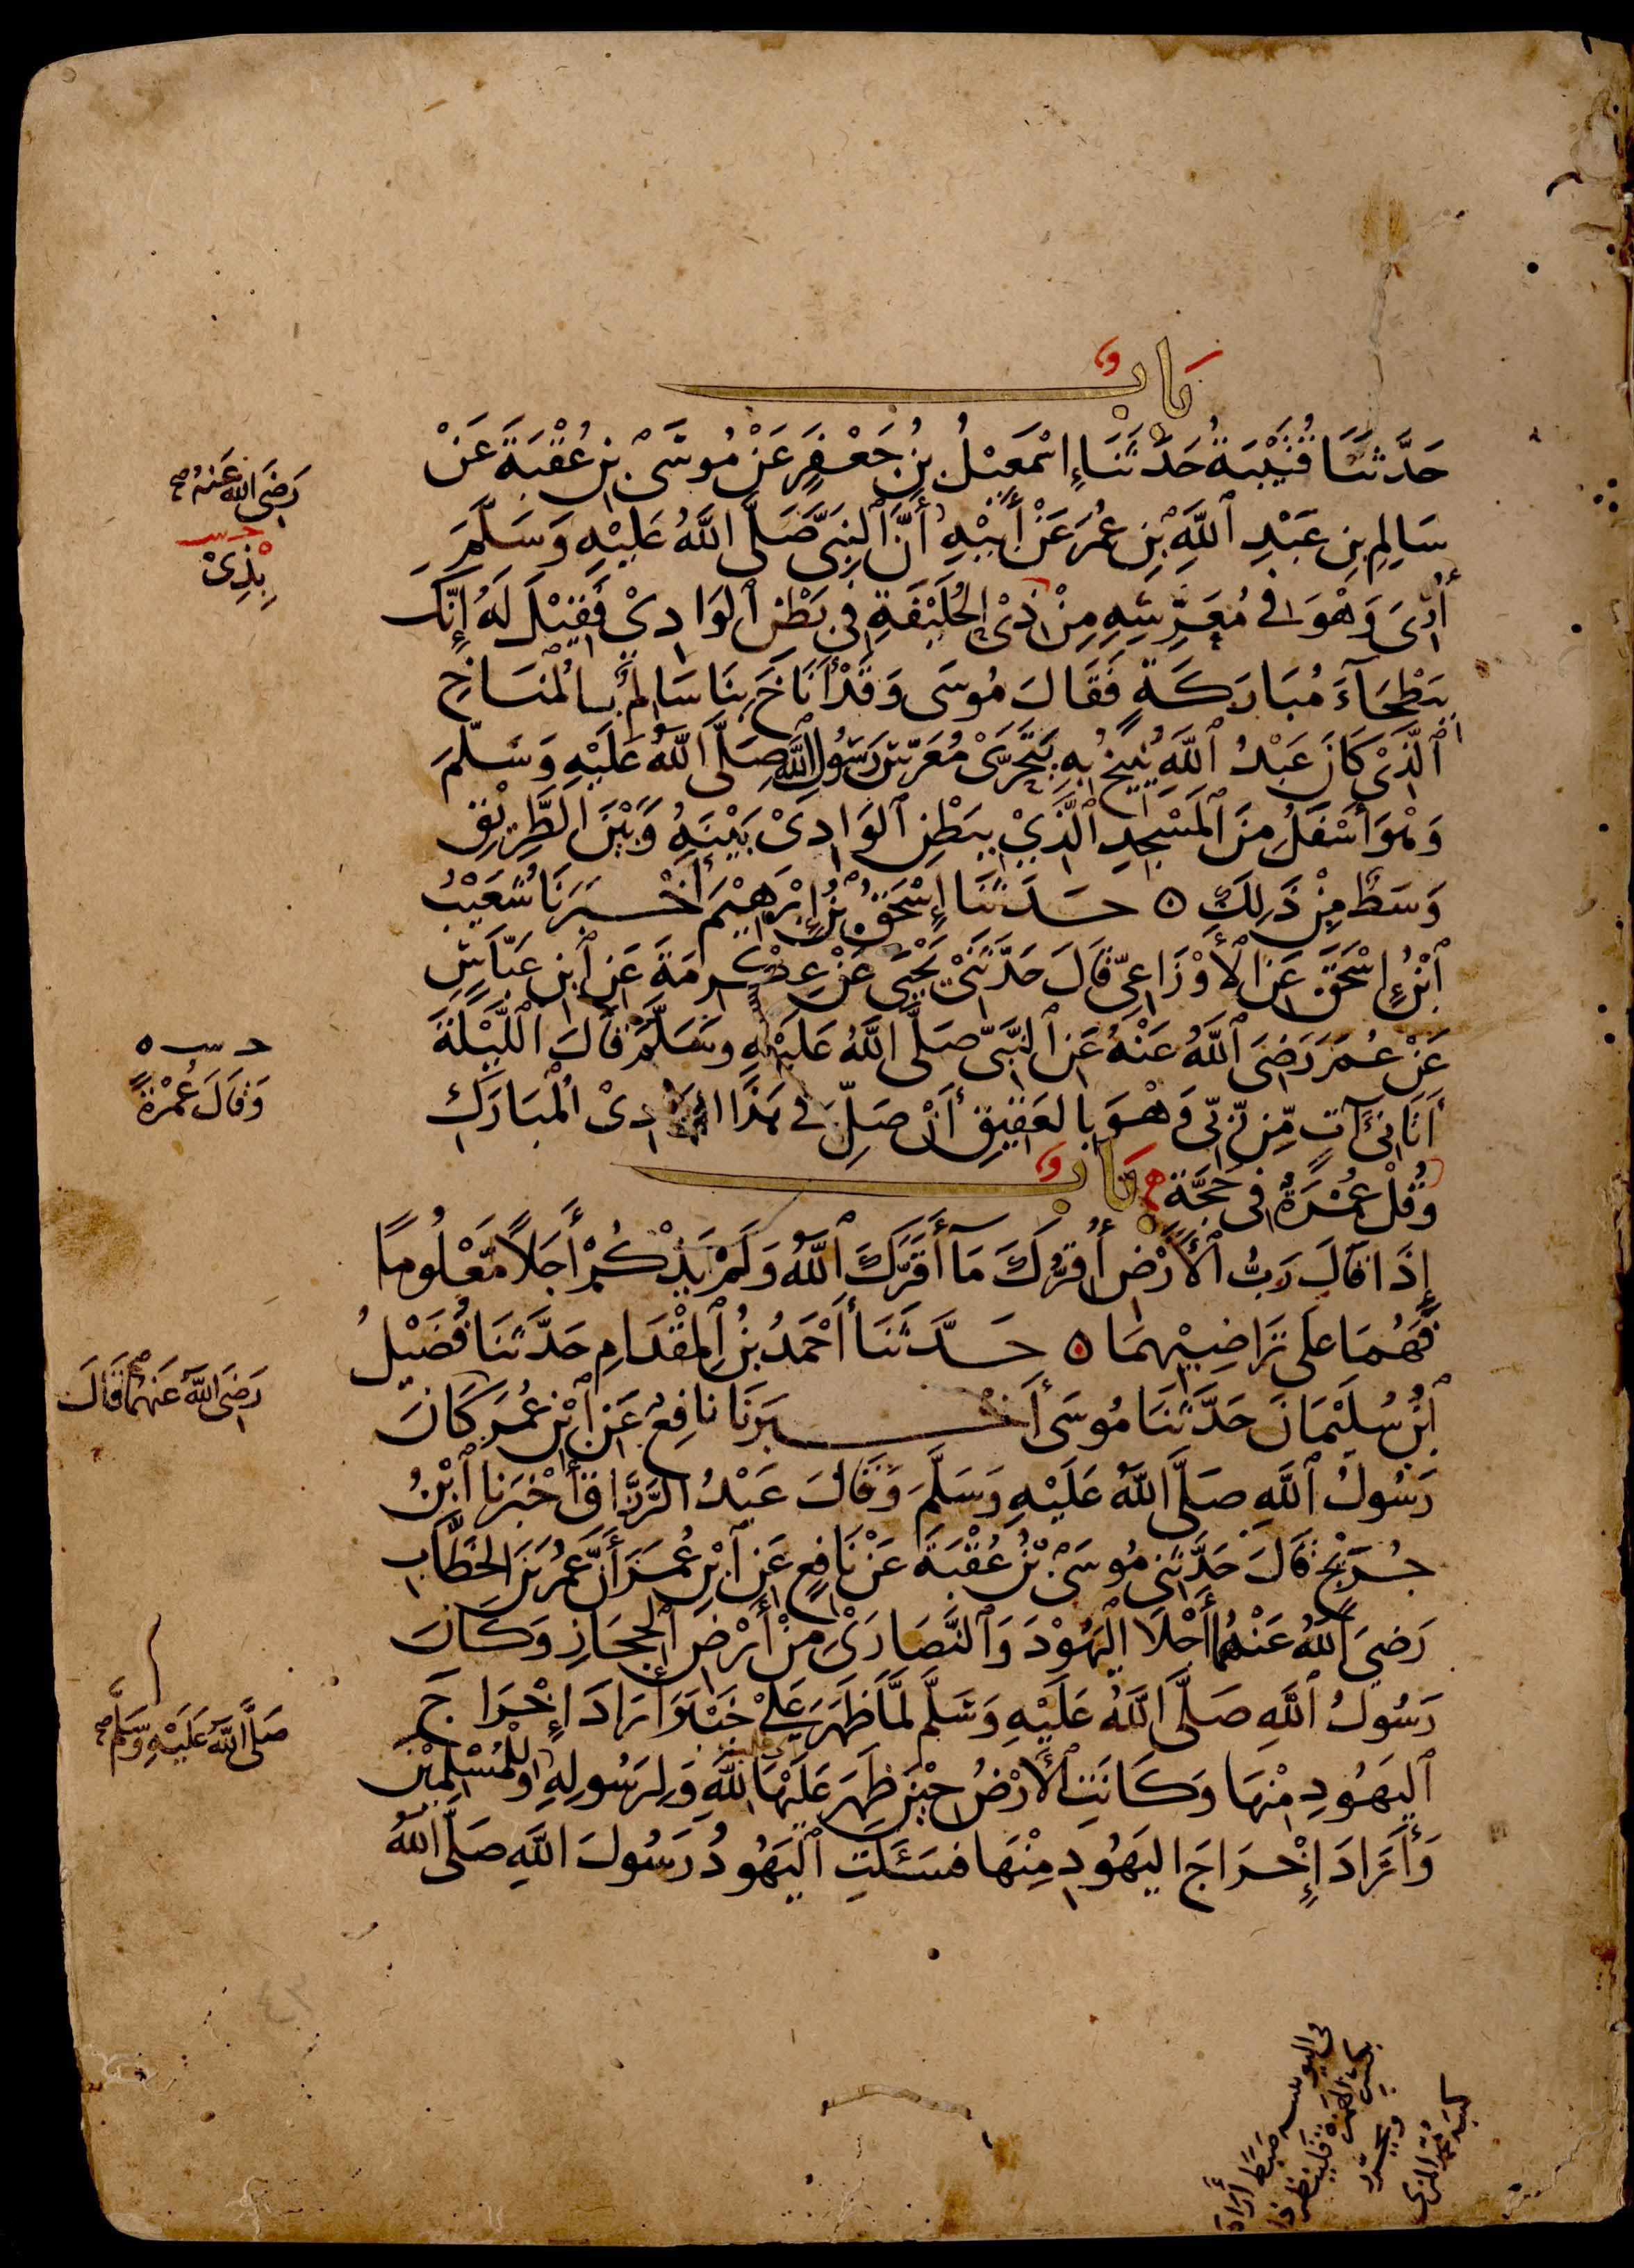 بَابٌ
حَدَّثَنَا قُتَيْبَةُ حَدَّثَنَا إِسْمَعِيْلُ بْنُ جَعْفَرٍ عَنْ مُوسَىْ بْنِ عُقْبَةَ عَنْ
سَالِمِ بْنِ عَبْدِ ٱللَّهِ بْنِ عُمَرَ عَنْ أَبِيْهِ أَنَّ ٱلنَّبِىَّ صَلَّى اللَّهُ عَلَيْهِ وَسَلَّمَ
أُرِىَ وَهْوَ فِى مُعَرَّسِهِ مِنْ ذِىْ الْحُلَيْفَةِ فِى بَطْنِ ٱلوَادِىْ فَقِيْلَ لَهُ إِنَّكَ
بِبَطْحَآءَ مُبَارَكَةٍ فَقَالَ مُوسَى وَقَدْ أَنَاخَ بِنَا سَالِمٌ بِالْمُنَاخِ
ٱلَّذِىْ كَانَ عَبْدُ ٱللَّهِ يُنِيْخُ بِهِ يَتَحَرَّىْ مُعَرَّسَ رَسُولِ ٱللَّهِ صَلَّى اللَّهُ عَلَيْهِ وَسَلَّمَ
وَهْوَ أَسْفَلُ مِنَ ٱلمَسْجِدِ ٱلَّذِىْ بِبَطْنِ ٱلوَادِىْ بَيْنَهُ وَبَيْنَ الطَّرِيْقِ
وَسَطٌ مِنْ ذَلِكَ ٥ حَدَّثَنَا إِسْحَقُ بْنُ إِبْرَهِيْمَ أَخْبَرَنَا شُعَيْبُ
ٱبْنُ إِسْحَقَ عَنِ ٱلأَوْزَاعِىِّ قَالَ حَدَّثَنِىْ يَحْيَى عَنْ عِكْرِمَةَ عَنِ ٱبْنِ عَبَّاسٍ
عَنْ عُمَرَ رَضِىَ ٱللَّهُ عَنْهُ عَنِ ٱلنَّبِىِّ صَلَّى اللَّهُ عَلَيْهِ وَسَلَّمَ قَالَ اللَّيْلَةَ
أَتَانِىْ آتٍ مِّنْ رَّبِّى وَهْوَ بِالعَقِيْقِ أَنْ صَلِّ فِى هَذَا الوَادِىْ الْمُبَارَكِ
وَقُلْ عُمْرَةٌ فِى حَجَّةٍ بَابٌ
إِذَا قَالَ رَبُّ ٱلأَرْضِ أُقِرُّكَ مَا أَقَرَّكَ ٱللَّهُ وَلَمْ يَذْكُرْ أَجَلاً مَّعْلُومًا
فَهُمَا عَلَى تَرَاضِيْهِمَا ٥ حَدَّثَنَا أَحْمَدُ بْنُ ٱلمِقْدَامِ حَدَّثَنَا فُضَيْلُ
ٱبْنُ سُلَيْمَانَ حَدَّثَنَا مُوسَى أَخْبَرَنَا نَافِعٌ عَنِ ٱبْنِ عُمَرَ كَانَ
رَسُولُ ٱللَّهِ صَلَّى اللَّهُ عَلَيْهِ وَسَلَّمَ وَقَالَ عَبْدُ الرَّزَّاقِ أَخْبَرَنَا ٱبْنُ
جُرَيْجٍ قَالَ حَدَّثَنِى مُوسَىْ بْنُ عُقْبَةَ عَنْ نَافِعٍ عَنِ ٱبْنِ عُمَرَ أَنَّ عُمَرَ بْنَ الخَطَّابِ
رَضِىَ ٱللَّهُ عَنْهُمَا أَجْلَا اليَهُوْدَ وَٱلنَّصَارَىْ مِنْ أَرْضِ ٱلحِجَازِ وَكَانَ
رَسُولُ ٱللَّهِ صَلَّى اللَّهُ عَلَيْهِ وَسَلَّمَ لَمَّا ظَهَرَ عَلَىْ خَيْبَرَ أَرَادَ إِخْرَاجَ
ٱليَهُودِ مِنْهَا وَكَانَتِ ٱلأَرْضُ حِيْنَ ظَهَرَ عَلَيْهَا لِلَّهِ وَلِرَسُولِهِ وَلِلْمُسْلِمِيْنَ
وَأَرَادَ إِخْرَاجَ اليَهُودِ مِنْهَا فَسَئَلَتِ ٱليَهُودُ رَسُولَ اللَّهِ صَلَّى اللَّهُ
رَضِىَ اللَّهُ عَنْهُ صح
حـ سـ
بِذِىْ
حـ سـ ٥
وَقَالَ عُمْرَةً
رَضِىَ اللَّهُ عَنْهُمَا قَالَ
صَلَّى اللَّهُ عَلَيْهِ وَسَلَّمَ صح